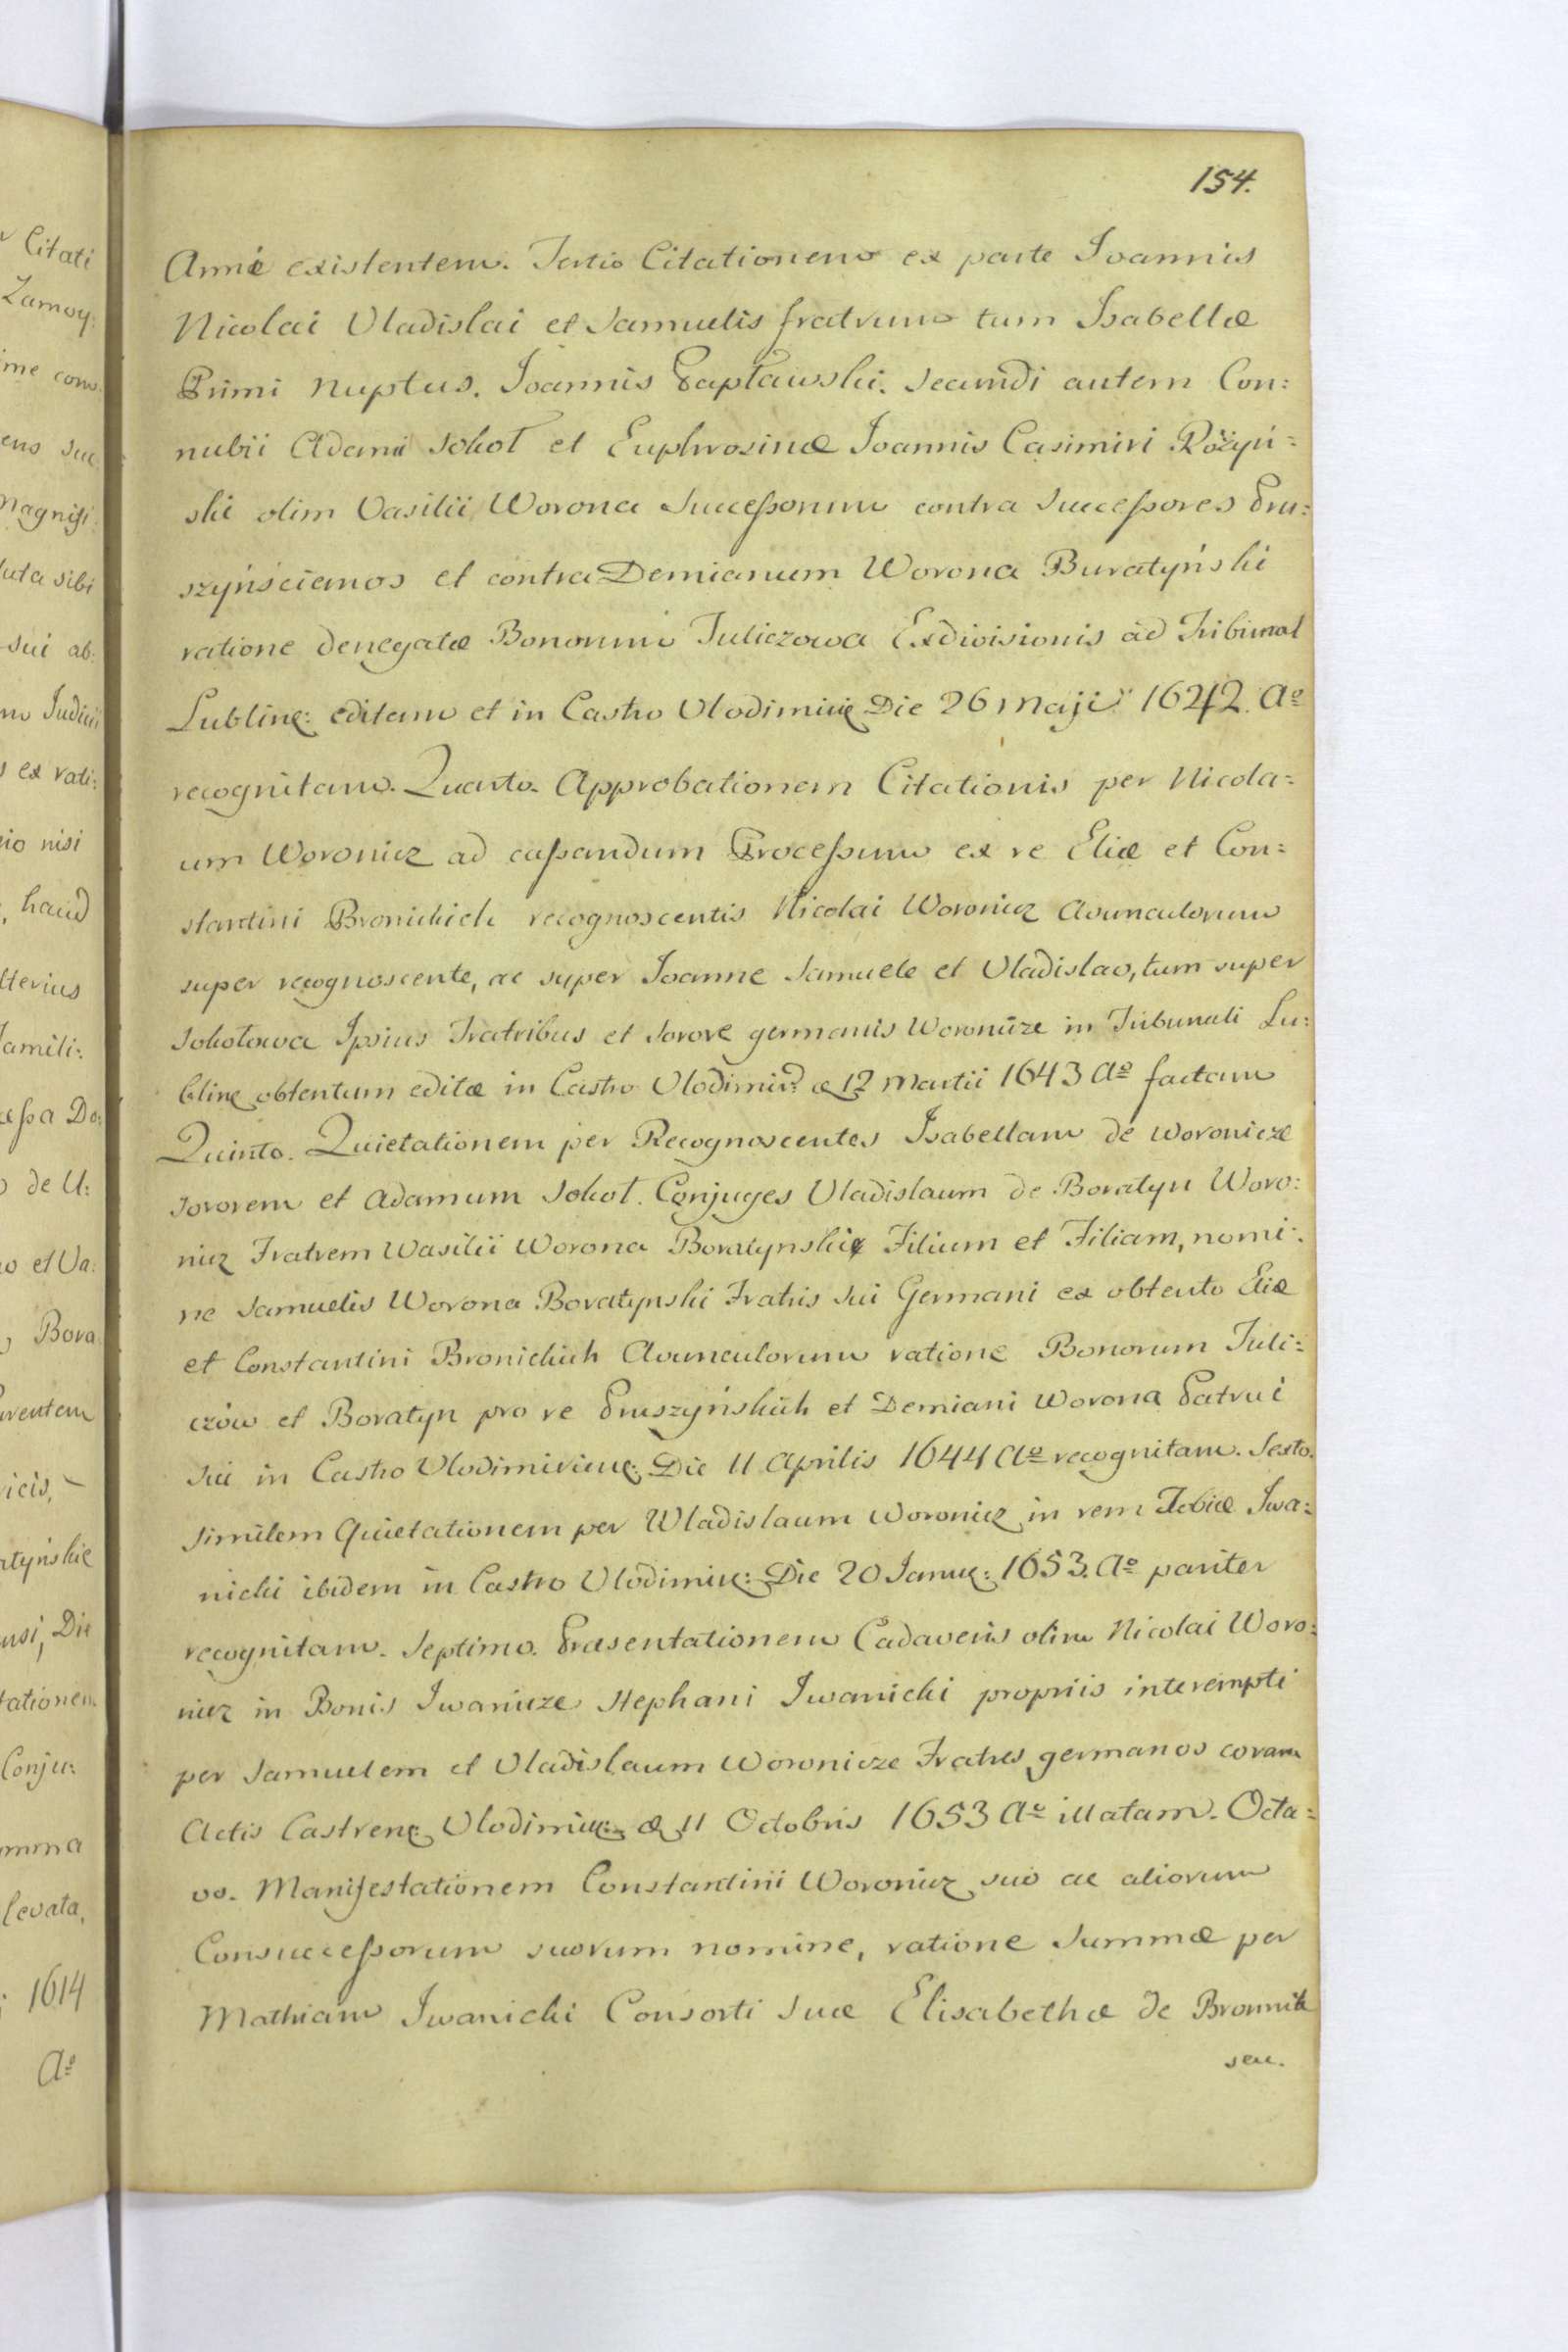 154.
Annæ existentem. Tertio Citationem ex parte Ioannis
Nicolai Vladislai et Samuelis fratrum tum Isabellæ
Primi nuptus. Ioannis Papławski. Secundi autem Con:
nubii Adami Sokoł et Euphrosinæ Ioannis Casimiri Rożyń:
ski olim Vasilii Worona Successorum contra Successores Pru:
szyńscianos et contra Demianum Worona Buratyński
ratione denegatæ Bonorum Juliczowa Exdivisionis ad Tribunal
Lubline: editam et in Castro Vlodimirie Die 26 Maji 1642. Aº
recognitam. Quarto. Approbationem Citationis per Nicola:
um Woronicz ad cassandum Processum ex re Eliæ et Con:
stantini Bronickich recognoscentis Nicolai Woronicz Avunculorum
super recognoscente, ac super Joanne Samuele et Vladislao, tum super
Sokołowa Ipsius Fratribus et Sorore germanis Woronicze in Tribunali Lu:
bline obtentum editæ in Castro Vlodimir: 12 Martii 1643 Aº factam
Quinto. Quietationem per Recognoscentes Isabellam de Woronicze
Sororem et Adamum Sokoł. Conjuges Vladislaum de Boratyn Woro:
nicz Fratrem Wasilii Worona Boratynskie Filium et Filiam, nomi:
ne Samuelis Worona Boratynski Fratris sui Germani ex obtento Eliæ
et Constantini Bronickich Avunculorum ratione Bonorum Juli:
czów et Boratyn pro re Pruszyńskich et Demiani Worona Patrui
sui in Castro Vlodimirien: Die 11 Aprilis 1644 Aº recognitam. Sexto.
Similem Quietationem per Wladislaum Woronicz in rem Iwa:
nicki ibidem in Castro Vlodimir: Die 20 Janua: 1653. Aº pariter
recognitam. Septimo. Præsentationem Cadaveris olim Nicolai Woro:
nicz in Bonis Iwanicze Stephani Iwanicki propriis interempti
per Samuelem et Vladislaum Woronicze Fratres germanos coram
Actis Castren: Vlodimir: 11 Octobris 1653 Aº illatam. Octa:
vo. Manifestationem Constantini Woronicz suo ac aliorum
Consuccessorum suorum nomine, ratione Summæ per
Mathiam Iwanicki Consorti suæ Elisabethæ de Bronnik
seu.